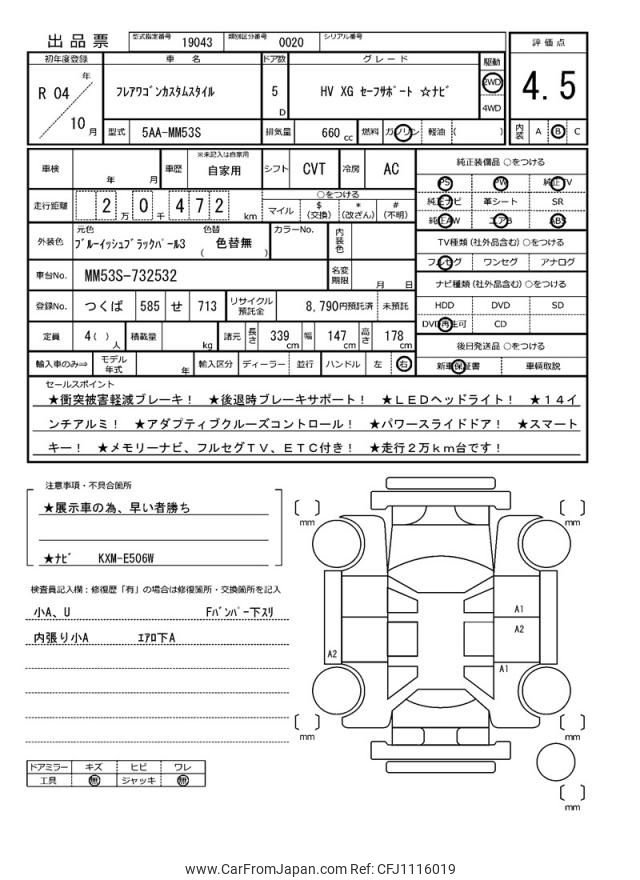 出品票 型式指定番号 19043 類別区分番号 0020 シリアル番号
初年度登録 車名 ドア数 グレード 駆動 評価点
R 04 年 10 月 フレアワゴンカスタムスタイル 5 D HV XG セーフサポート ☆ナビ 2WD 4WD 4.5
型式 5AA-MM53S 排気量 660 cc 燃料 ガソリン 軽油 ( ) 内装 A B C
車検 年 月 車歴 ※未記入は自家用 自家用 シフト CVT 冷房 AC 純正装備品 ○をつける
PS PW 純正TV
走行距離 2 万 0 千 4 7 2 km ○をつける
マイル $(交換) *(改ざん) #(不明)
純正ナビ 革シート SR
純正AW エアB ABS
外装色 元色 ブルーイッシュブラックパール3 色替 ( 色替無 ) カラーNo. 内装色
TV種類(社外品含む) ○をつける
フルセグ ワンセグ アナログ
車台No. MM53S-732532 名変期限 月 日
ナビ種類(社外品含む) ○をつける
登録No. つくば 585 せ 713 リサイクル預託金 8,790円預託済 未預託
HDD DVD SD
DVD再生可 CD
定員 4( ) 人 積載量 kg 諸元 長さ 339 cm 幅 147 cm 高さ 178 cm
後日発送品 ○をつける
輸入車のみ⇒ モデル年式 年 輸入区分 ディーラー 並行 ハンドル 左 右
新車保証書 車輌取説
セールスポイント
★衝突被害軽減ブレーキ! ★後退時ブレーキサポート! ★LEDヘッドライト! ★14イ
ンチアルミ! ★アダプティブクルーズコントロール! ★パワースライドドア! ★スマート
キー! ★メモリーナビ、フルセグTV、ETC付き! ★走行2万km台です!
注意事項・不具合箇所
★展示車の為、早い者勝ち
★ナビ KXM-E506W
検査員記入欄:修復歴「有」の場合は修復箇所・交換箇所を記入
小A、U Fバンパー下スリ
内張り小A エアロ下A
mm
mm
A1
A2
A2
A1
mm
mm
mm
ドアミラー キズ ヒビ ワレ
工具 無 ジャッキ 無
www.CarFromJapan.com Ref: CFJ1116019